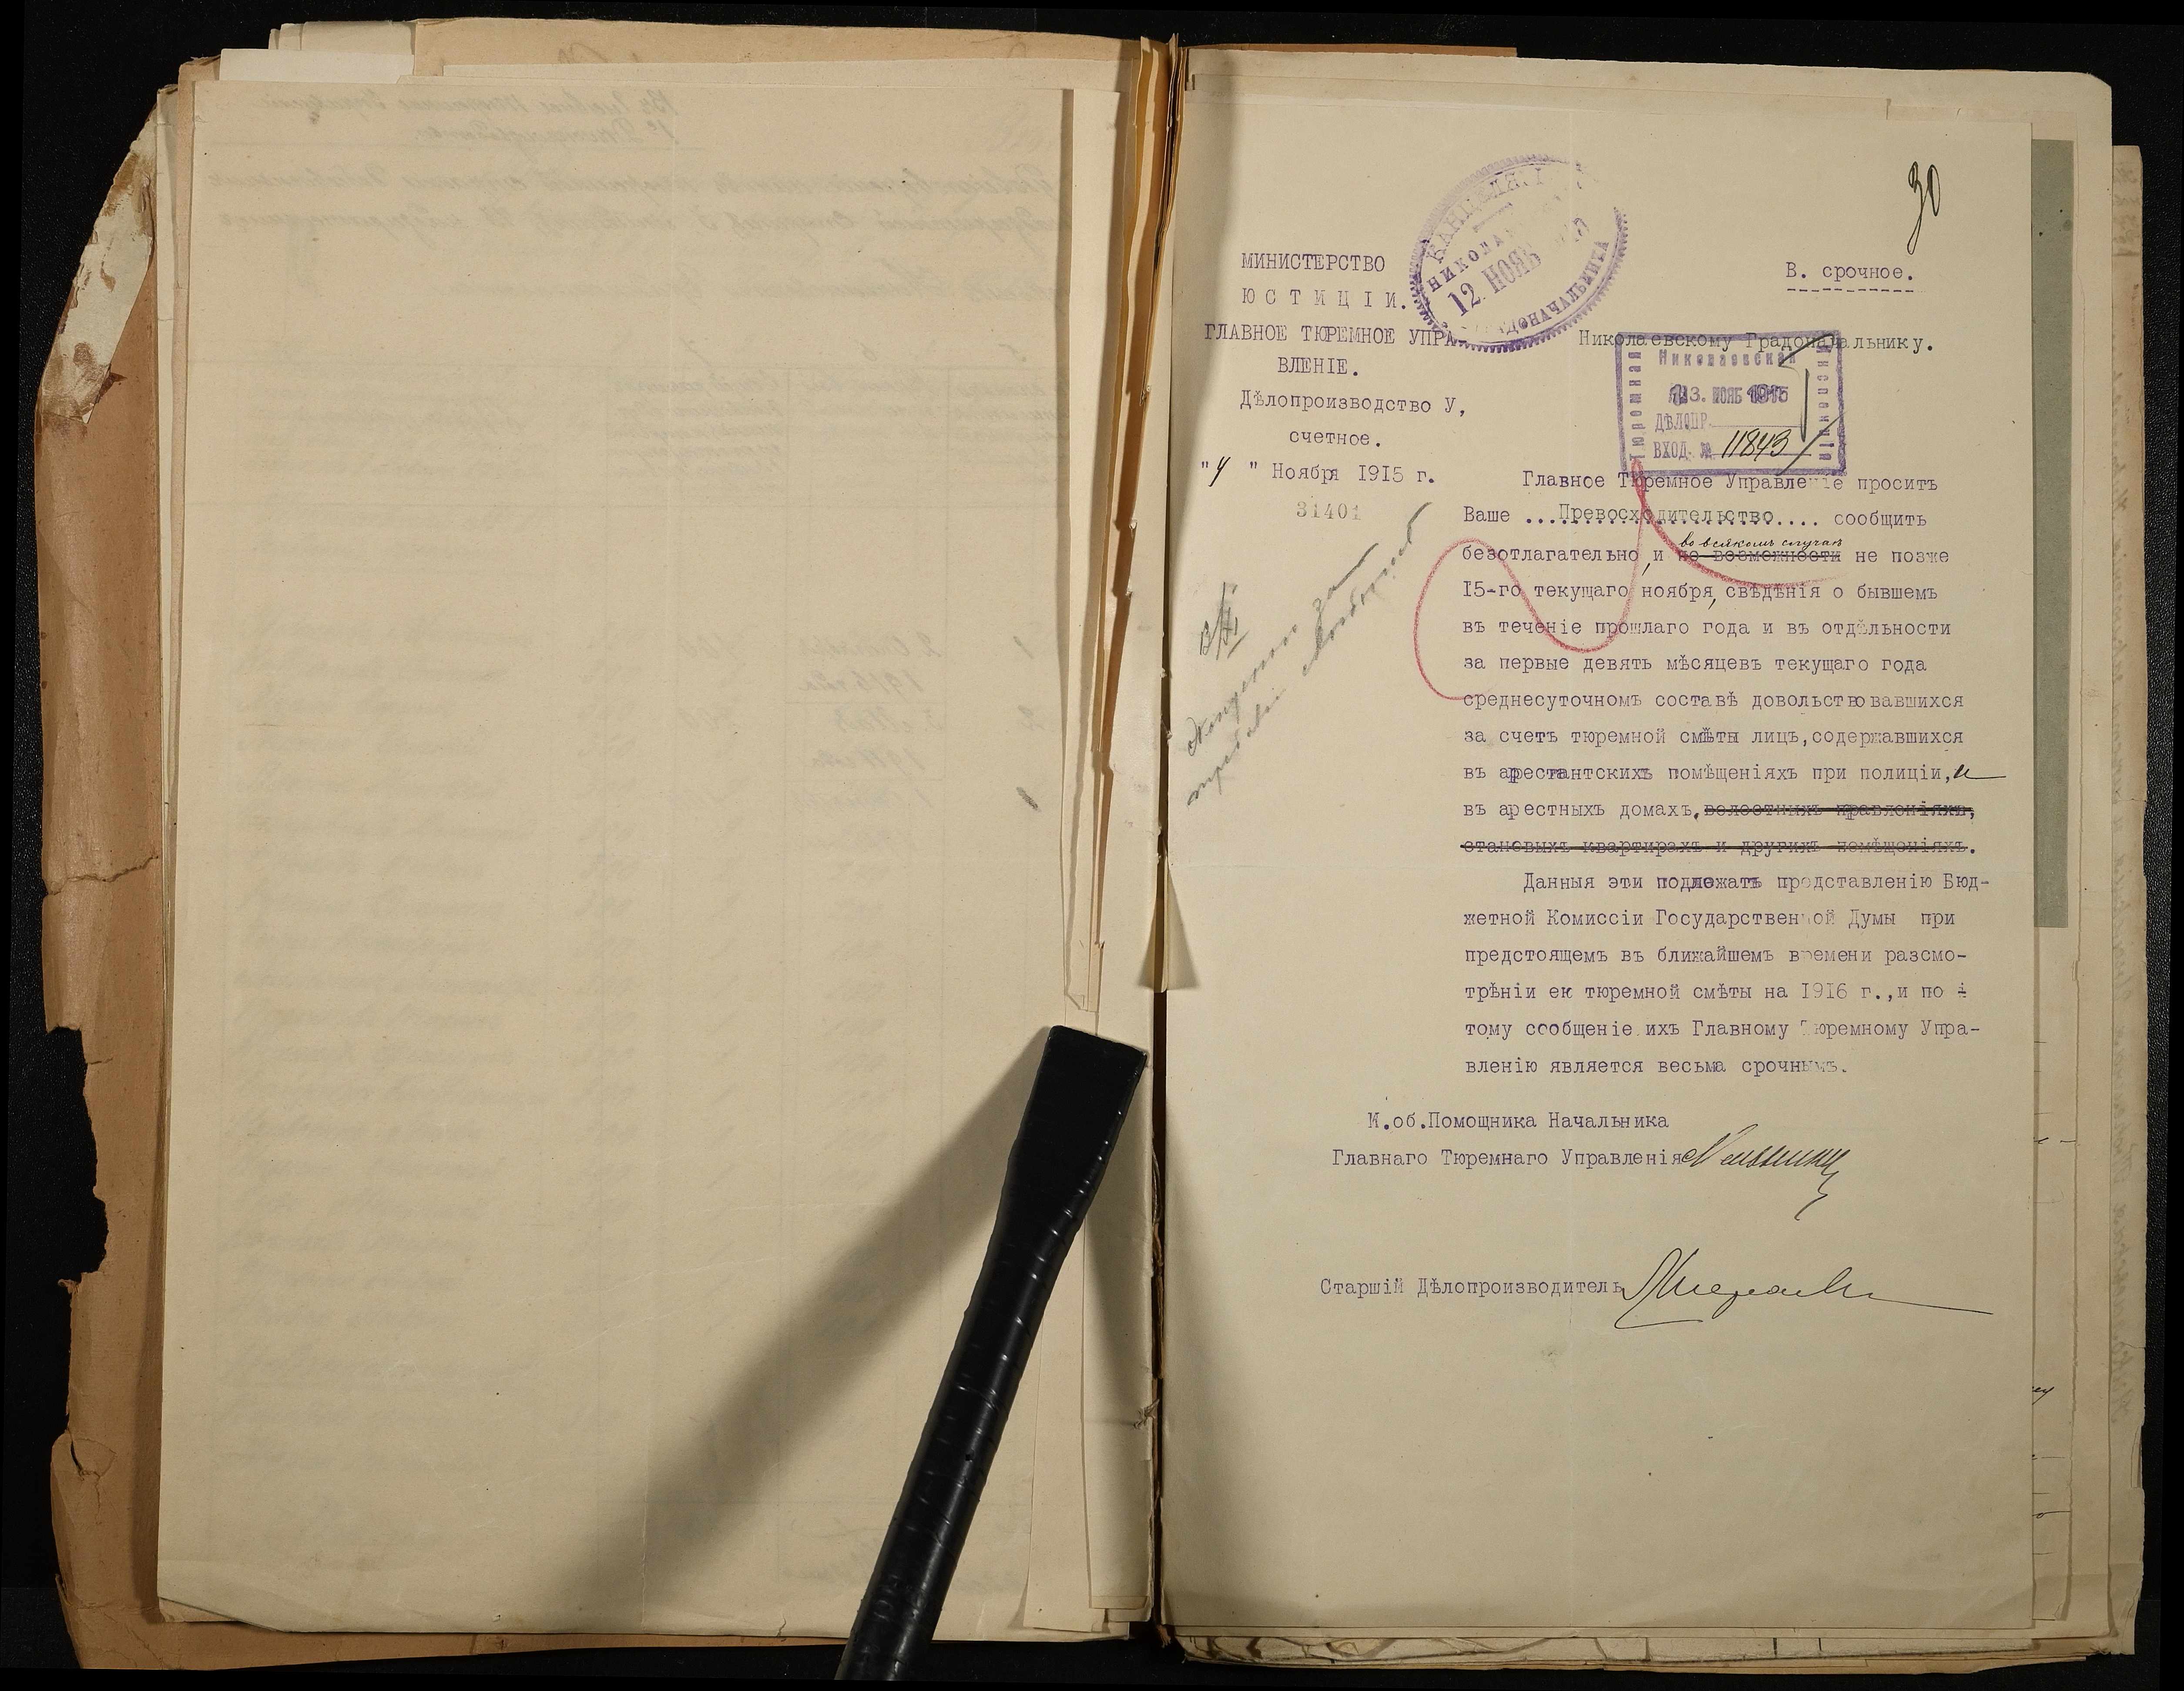 30
КАНЦЕЛЯРІЯ
12 НОЯБ
ГРАДОНАЧАЛЬНИКА
МИНИСТЕРСТВО
ЮСТИЦІИ.
ГЛАВНОЕ ТЮРЕМНОЕ УПРА-
ВЛЕНІЕ.
Дѣлопроизводство У,
счетное.
"4" Ноября 1915 г.
31401
В. срочное.
Николаевскому Градоначальнику.
Тюремная
Николаевская
Инспекція
13. НОЯБ 1915
ДѢЛОПР.
ВХОД. № 11843
Главное Тюремное Управленіе проситъ
Ваше ...Превосходительство.... сообщить
во всякомъ случаѣ
безотлагательно, и по возможности не позже
15-го текущаго ноября, свѣдѣнія о бывшемъ
въ теченіе прошлаго года и въ отдѣльности
за первые девять мѣсяцевъ текущаго года
среднесуточномъ составѣ довольствовавшихся
за счетъ тюремной смѣты лицъ, содержавшихся
въ арестантскихъ помѣщеніяхъ при полиціи, и
въ арестныхъ домахъ, волостныхъ правленіяхъ,
становыхъ квартирахъ и другихъ помѣщеніяхъ.
Данныя эти подлежатъ представленію Бюд-
жетной Комиссіи Государственной Думы при
предстоящемъ въ ближайшемъ времени разсмо-
трѣніи ею тюремной смѣты на 1916 г., и по
тому сообщеніе ихъ Главному Тюремному Упра-
вленію является весьма срочнымъ.
И.об.Помощника Начальника
Главнаго Тюремнаго Управленія
Старшій Дѣлопроизводитель